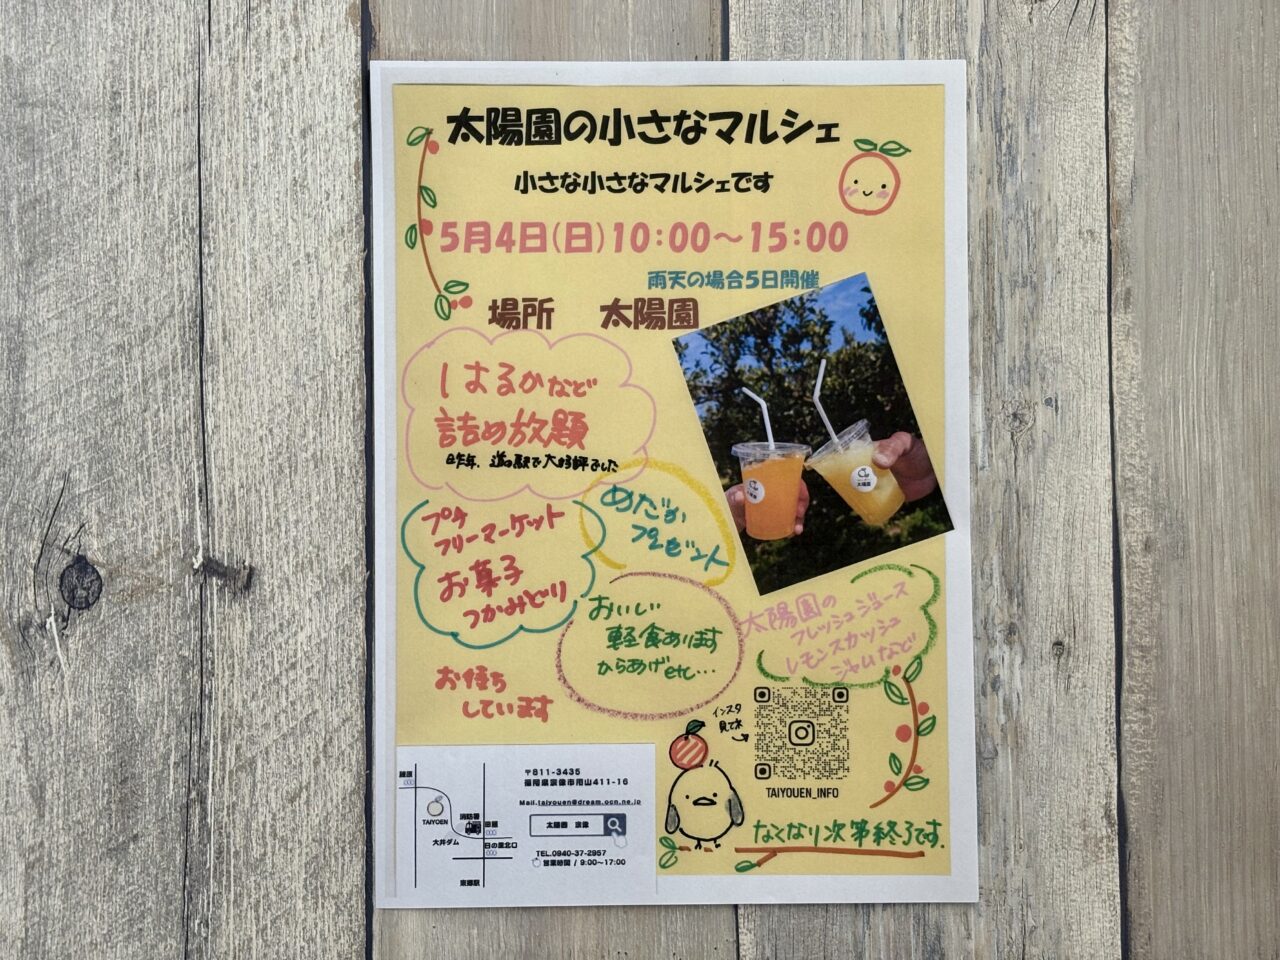 太陽園の小さなマルシェ
小さな小さなマルシェです
5月4日(日)10:00～15:00
雨天の場合5日開催
場所 太陽園
はるかなど
詰め放題
昨年、道の駅で大好評でした
めだか
プレゼント
プチ
フリーマーケット
お菓子
つかみどり
おいしい
軽食あります
からあげetc…
太陽園の
フレッシュジュース
レモンスカッシュ
ジャムなど
お待ち
しています
インスタ
見てネ
TAIYOUEN_INFO
なくなり次第終了です.
〒811-3435
福岡県宗像市用山411-16
Mail.taiyouen@dream.ocn.ne.jp
太陽園 宗像
TEL.0940-37-2957
営業時間 / 9:00～17:00
TAIYOEN
消防署
大井ダム
日の里北口
東郷駅
太陽園